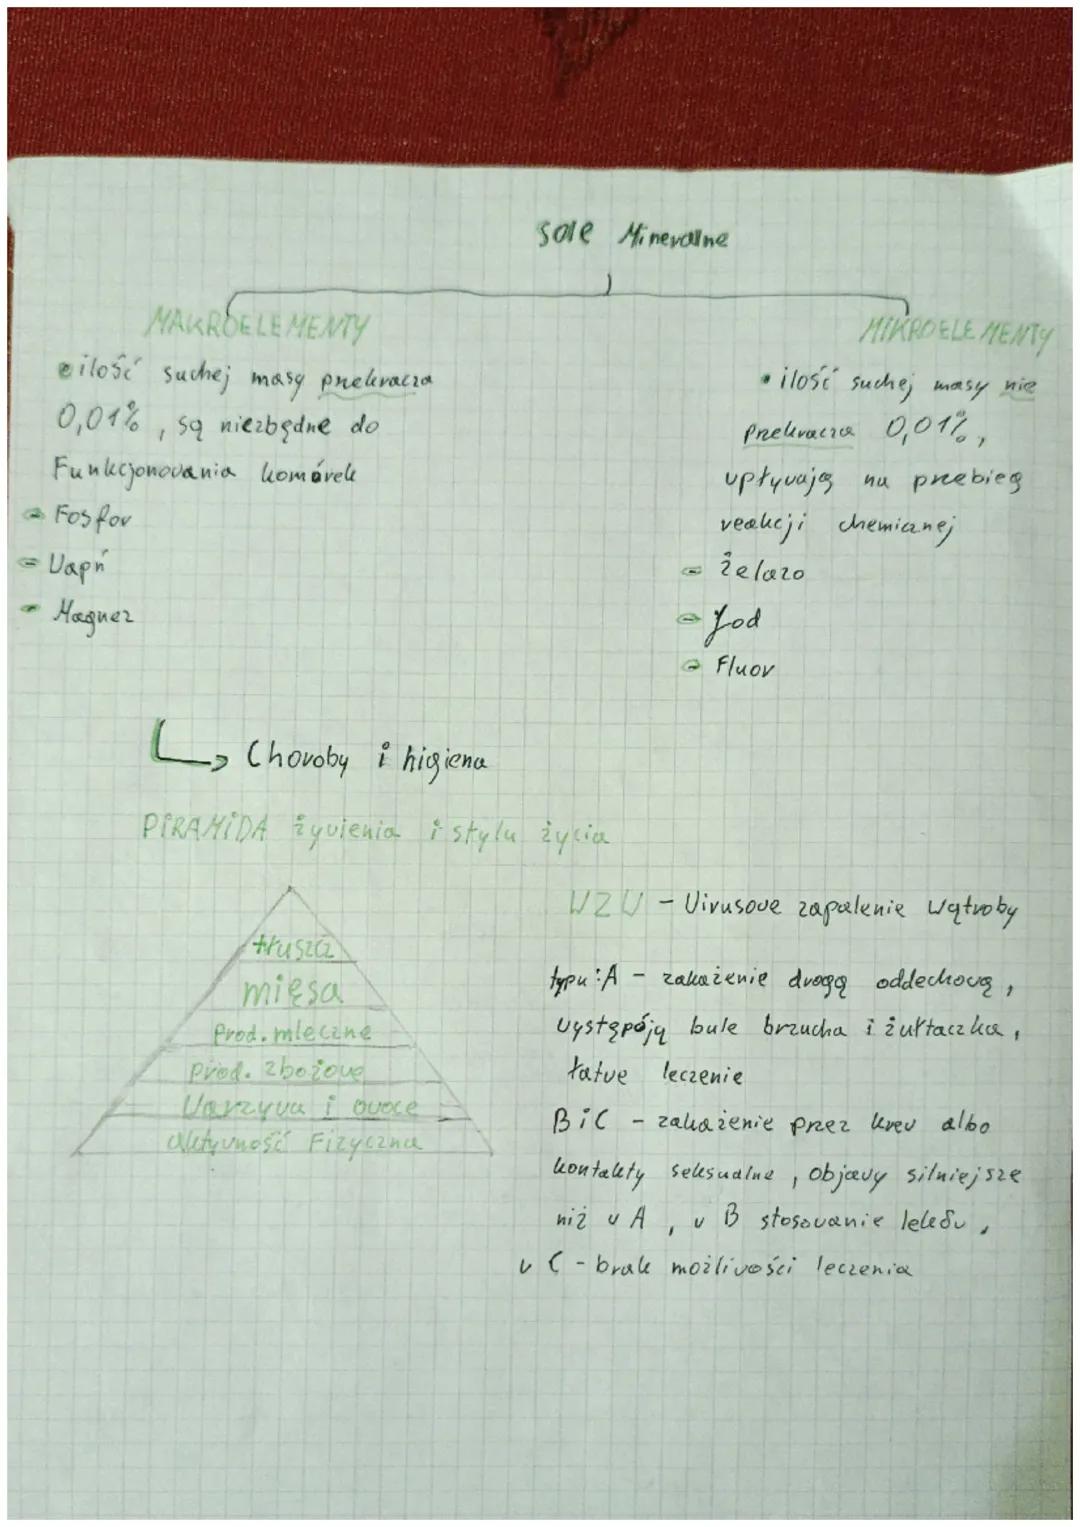 Sole Mineralne
MAKROELEMENTY
ilość suchej masy przekracza
0,01%, są niezbędne do
Funkcjonowania komórek
Fosfor
Wapń
Magnez
MIKROELEMENTY
ilość suchej masy nie
przekracza 0,01%,
wpływają na przebieg
reakcji chemicznej
Żelazo
Jod
Fluor
Choroby i higiena
PIRAMIDA żywienia i stylu życia
tłuszcz
mięsa
Prod. mleczne
prod. zbożowe
Warzywa i owoce
aktywność Fizyczna
WZW - Wirusowe zapalenie wątroby
typu: A - zakażenie drogą oddechową,
występóją bule brzucha i żułtaczka,
łatwe leczenie
B i C - zakażenie przez krew albo
kontakty seksualne, objawy silniejsze
niż w A, w B stosowanie leków,
w C - brak możliwości leczenia